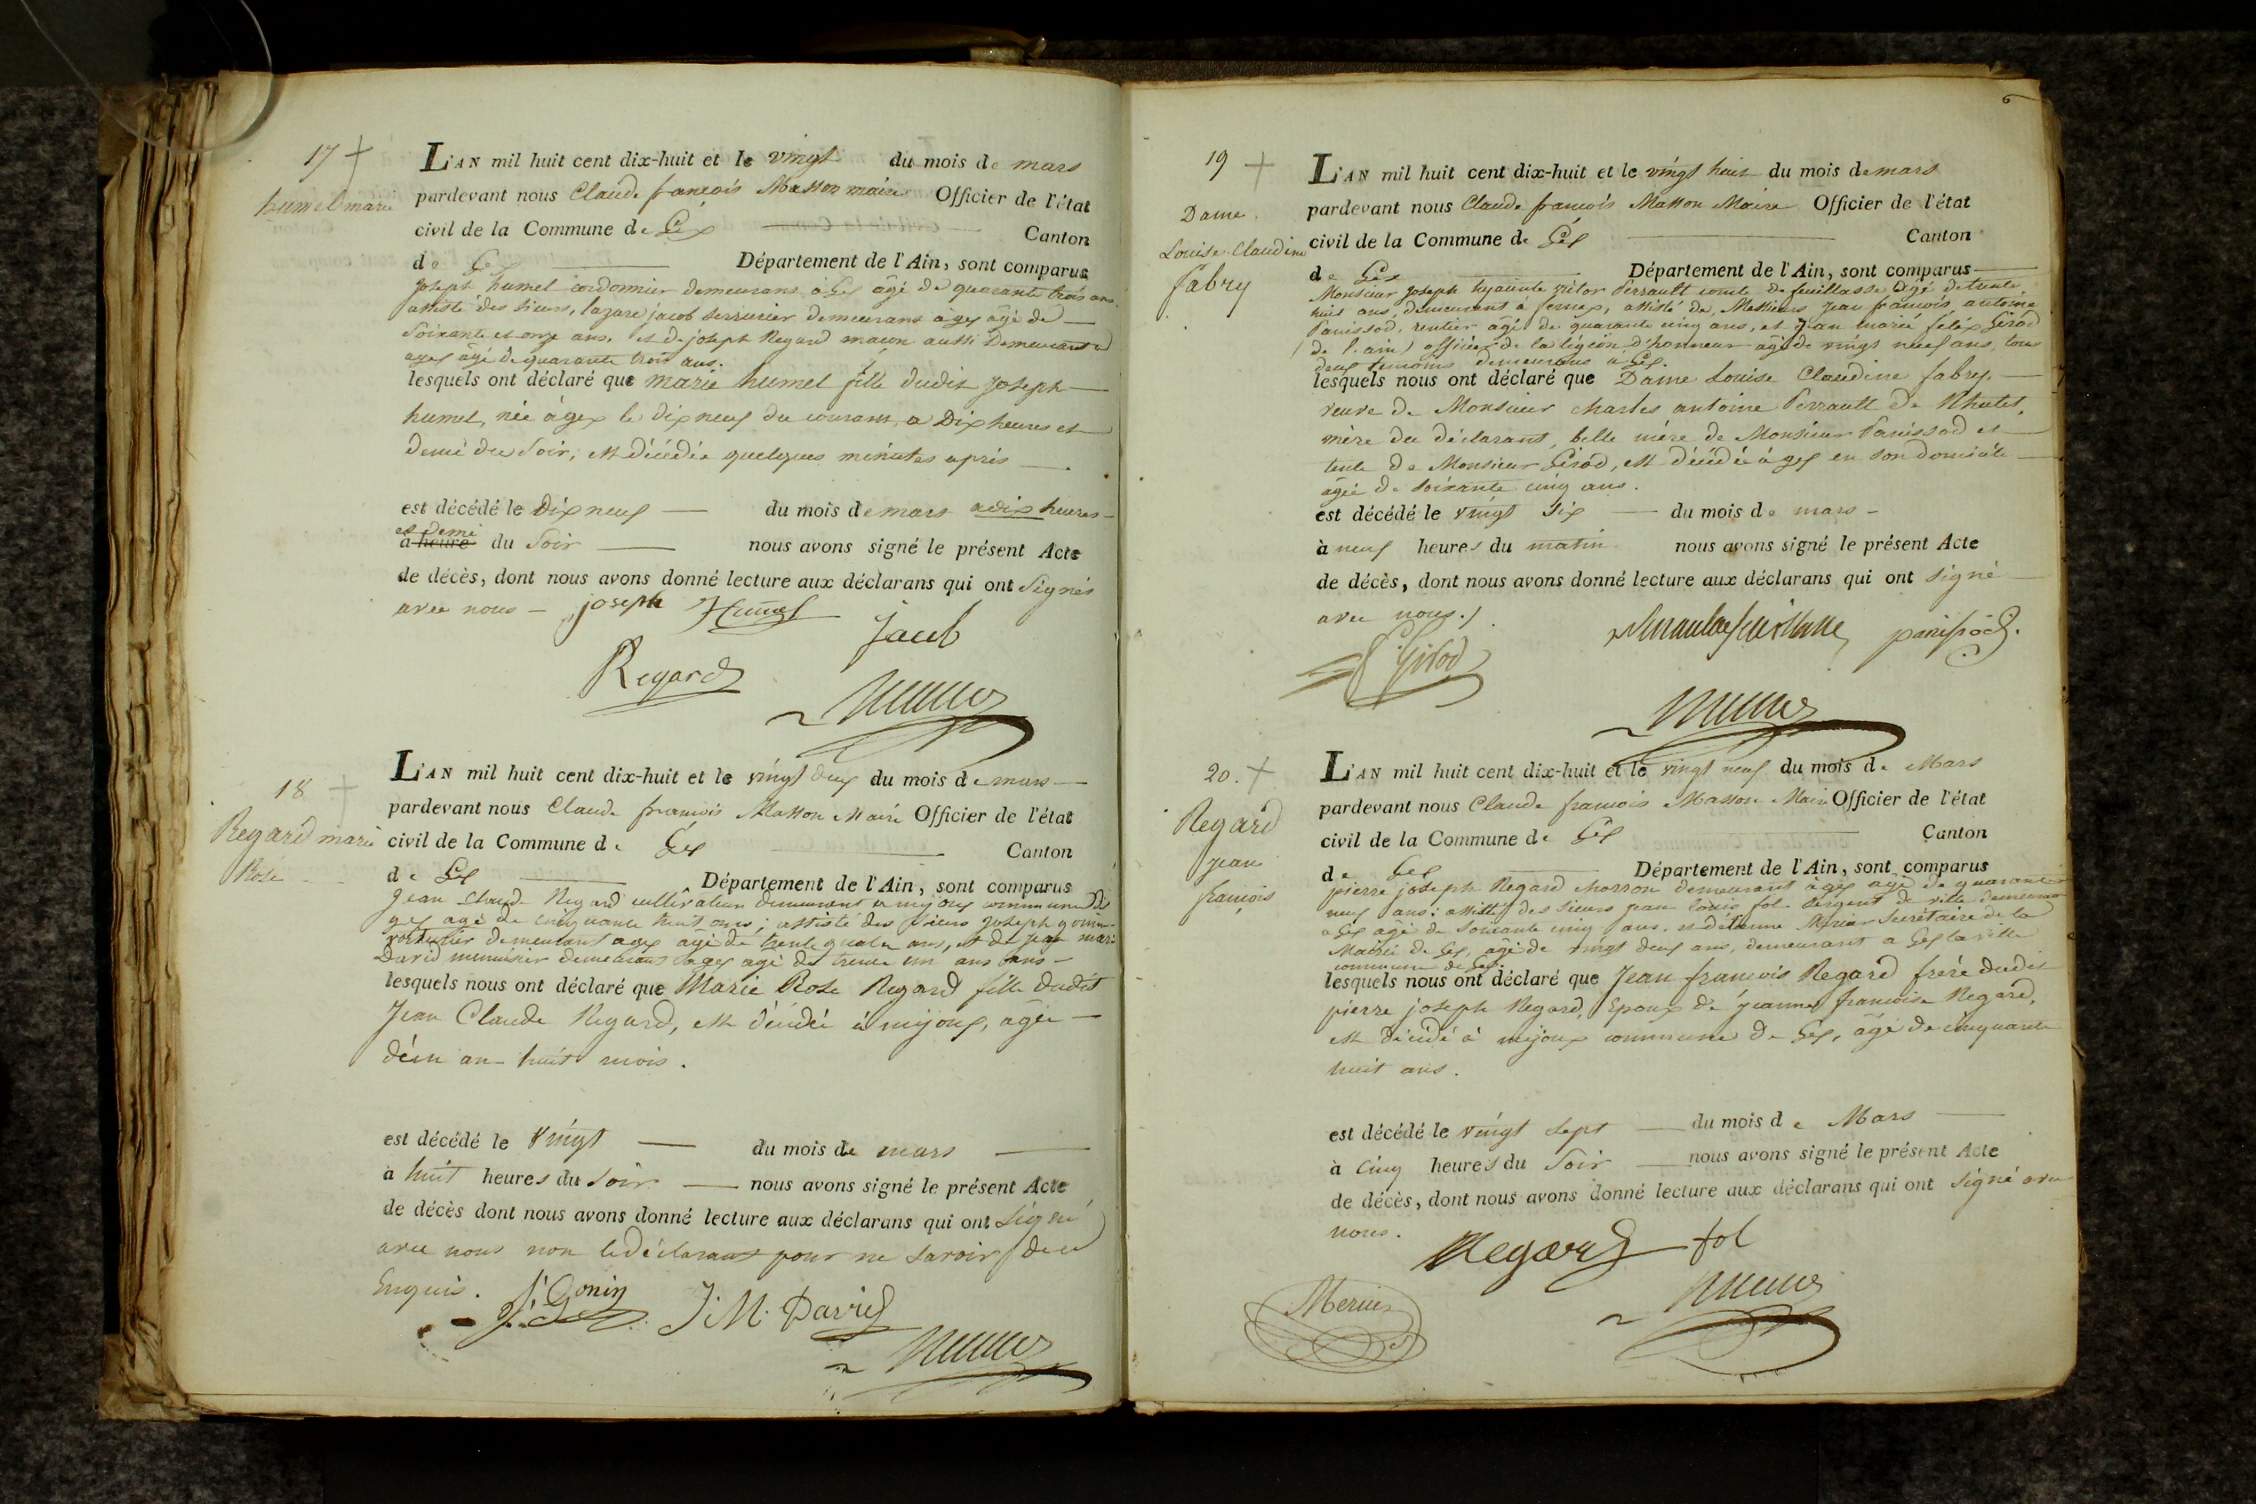 17 +
humel marie
L'AN mil huit cent dix-huit et le vingt du mois de mars
pardevant nous Claude françois Masson maire Officier de l'état
civil de la Commune de Gex Canton
de Gex Département de l'Ain, sont comparus
joseph humel cordonnier demeurant a Gex âgé de quarante trois ans,
assisté des sieurs, lazare jacob serrurier demeurans à gex âgé de
Soixante et onze ans, et de joseph Regard macon aussi demeurant a
agex âgé de quarante trois ans.
lesquels ont déclaré que marie humel fille dudit joseph
humel, née à gex le dix neuf du courant, a Dix heures et
demi du Soir, est décédée quelques minutes après
est décédé le Dix neuf du mois de mars a dix heures
et demi
à heure du Soir nous avons signé le présent Acte
de décès, dont nous avons donné lecture aux déclarans qui ont Signés
avec nous joseph Humel
Jacob
Regard
18 +
Regard marie
Rose
L'AN mil huit cent dix-huit et le vingt deux du mois de mars
pardevant nous Claude françois Masson Maire Officier de l'état
civil de la Commune de Gex Canton
de Gex Département de l'Ain, sont comparus
Jean Claude Regard cultivateur demeurant a mijoux commune de
gex agé de cinquante huit ans; assisté des sieurs Joseph gonin
demeurant a gex agé de trente quatre ans, et de jean marie
David menuisier demeurant a gex agé de trente un ans
lesquels nous ont déclaré que Marie Rose Regard fille dudit
Jean Claude Regard, est décédé à mijoux, âgée
d'un an huit mois.
est décédé le vingt du mois de mars
à huit heures du Soir nous avons signé le présent Acte
de décès dont nous avons donné lecture aux déclarans qui ont signé
avec nous non le déclarant pour ne savoir de ce
Enquis. J. Gonin J. M. David
6
19 +
Dame
Louise Claudine
fabry
L'AN mil huit cent dix-huit et le vingt huit du mois de mars
pardevant nous Claude françois Masson Maire Officier de l'état
civil de la Commune de Gex Canton
de Gex Département de l'Ain, sont comparus
Monsieur joseph hyacinte victor Perrault comte de feuillasse âgé de trente
huit ans, demeurant à ferney, assisté de Messieurs jean françois antoine
Panissod, rentier âgé de quarante cinq ans, et jean marie félix Girod
(de l'ain) officier de la légion d'honneur âgé de vingt neuf ans, tous
deux témoins demeurans a Gex.
lesquels nous ont déclaré que Dame Louise Claudine fabry
veuve de Monsieur charles antoine Perrault de Rhutet,
mère du déclarant, belle mère de Monsieur Panissod et
tente de Monsieur Girod, est décédée à gex en son domicile
âgée de soixante cinq ans.
est décédé le vingt Six du mois de mars
à neuf heures du matin nous avons signé le présent Acte
de décès, dont nous avons donné lecture aux déclarans qui ont signé
avec nous.
panissod.
Girod
20. +
Regard
jean
françois
L'AN mil huit cent dix-huit et le vingt neuf du mois de Mars
pardevant nous Claude françois Masson Maire Officier de l'état
civil de la Commune de Gex Canton
de Gex Département de l'Ain, sont comparus
pierre joseph Regard demeurant à gex agé de quarante
neuf ans; assisté des sieurs jean louis fol Sergent de ville demeurant
a Gex âgé de soixante cinq ans, et détienne Mercier Secrétaire de la
Mairie de Gex, âgé de vingt deux ans, demeurant a Gex la ville
commune de Gex.
lesquels nous ont déclaré que Jean françois Regard frère dudit
pierre joseph Regard, Epoux de jeanne françoise Regard,
est décédé à mijoux commune de Gex, âgé de cinquante
huit ans.
est décédé le vingt sept du mois de Mars
à cinq heures du Soir nous avons signé le présent Acte
de décès, dont nous avons donné lecture aux déclarans qui ont signé avec
nous.
Regard fol
Mercier